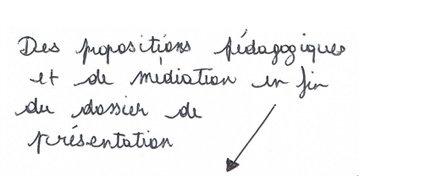 Des propositions pédagogiques
et de médiation en fin
du dossier de
présentation